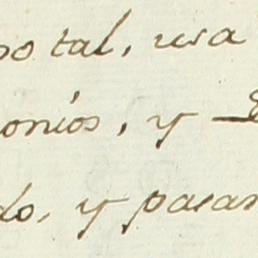 so tal, usa
onios, y
do, y pasan